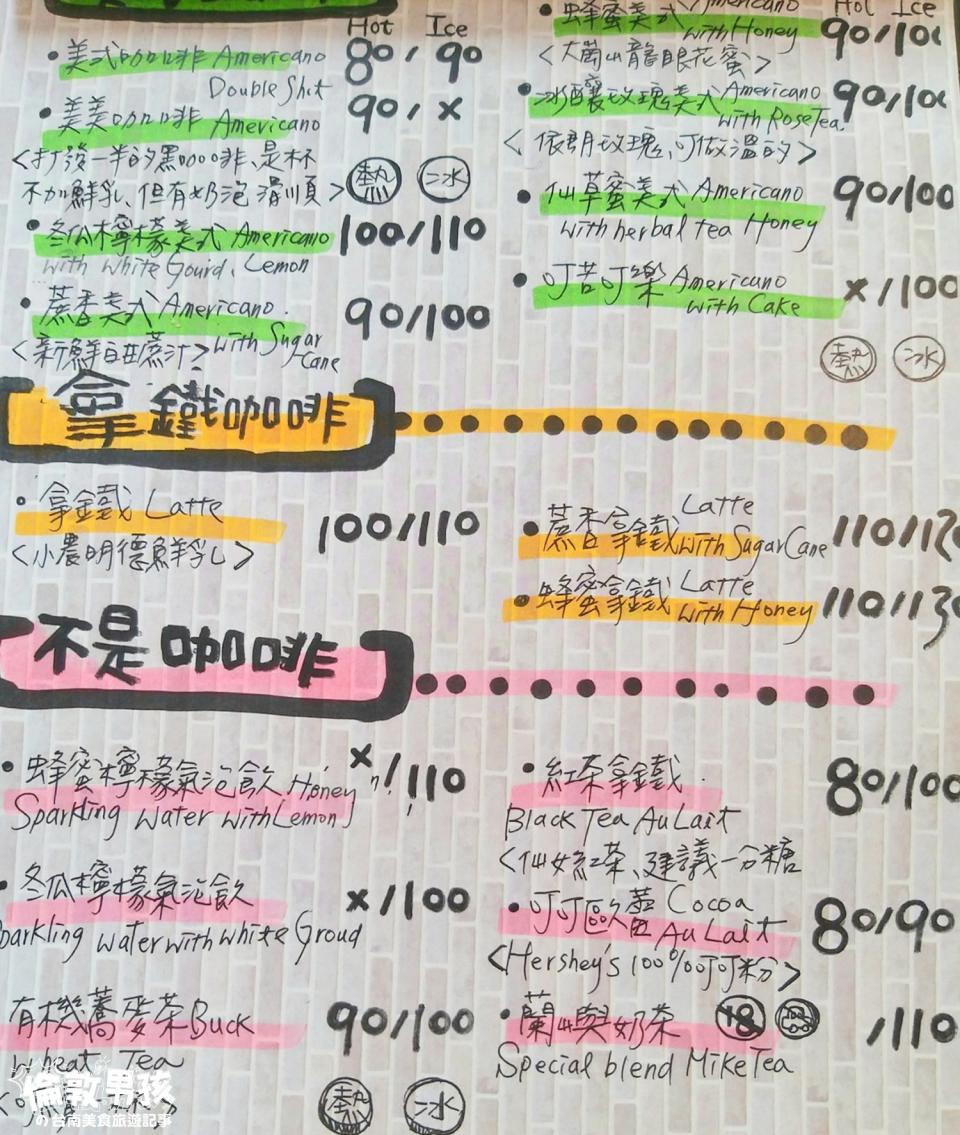 Hot Ice
美式咖啡 Americano 80/90
Double Shot
美美咖啡 Americano 90/x
<打發一半的黑咖啡、是杯
不加鮮乳、但有奶泡滑順>
熱 冰
冬瓜檸檬美式 Americano 100/110
with white Gourd、Lemon
蔗香美式 Americano 90/100
<新鮮白甘蔗汁> with Sugar
Cane
Hot Ice
蜂蜜美式 Americano
with Honey
<大崗山龍眼花蜜>
冰釀玫瑰美式 Americano
with Rose Tea
玫瑰、可做溫的>
仙草蜜美式 Americano 90/100
with herbal tea Honey
可苦可樂 Americano x/100
with Cake
熱 冰
拿鐵咖啡
拿鐵 Latte 100/110
<小農明德鮮乳>
蔗香拿鐵 Latte
with SugarCane
蜂蜜拿鐵 Latte
with Honey
不是咖啡
蜂蜜檸檬氣泡飲 Honey x/110
Sparkling water with Lemon
冬瓜檸檬氣泡飲 x/100
parkling water with white Groud
有機蕎麥茶 Buck 90/100
wheat Tea
熱 冰
紅茶拿鐵 80/100
Black Tea Au Lait
<仙女紅茶、建議一分糖
可可歐蕾 Cocoa 80/90
Au Lait
<Hershey's 100%可可粉>
蘭山與奶茶 18 /110
Special blend Mike Tea
倫敦男孩
の台南美食旅遊記事